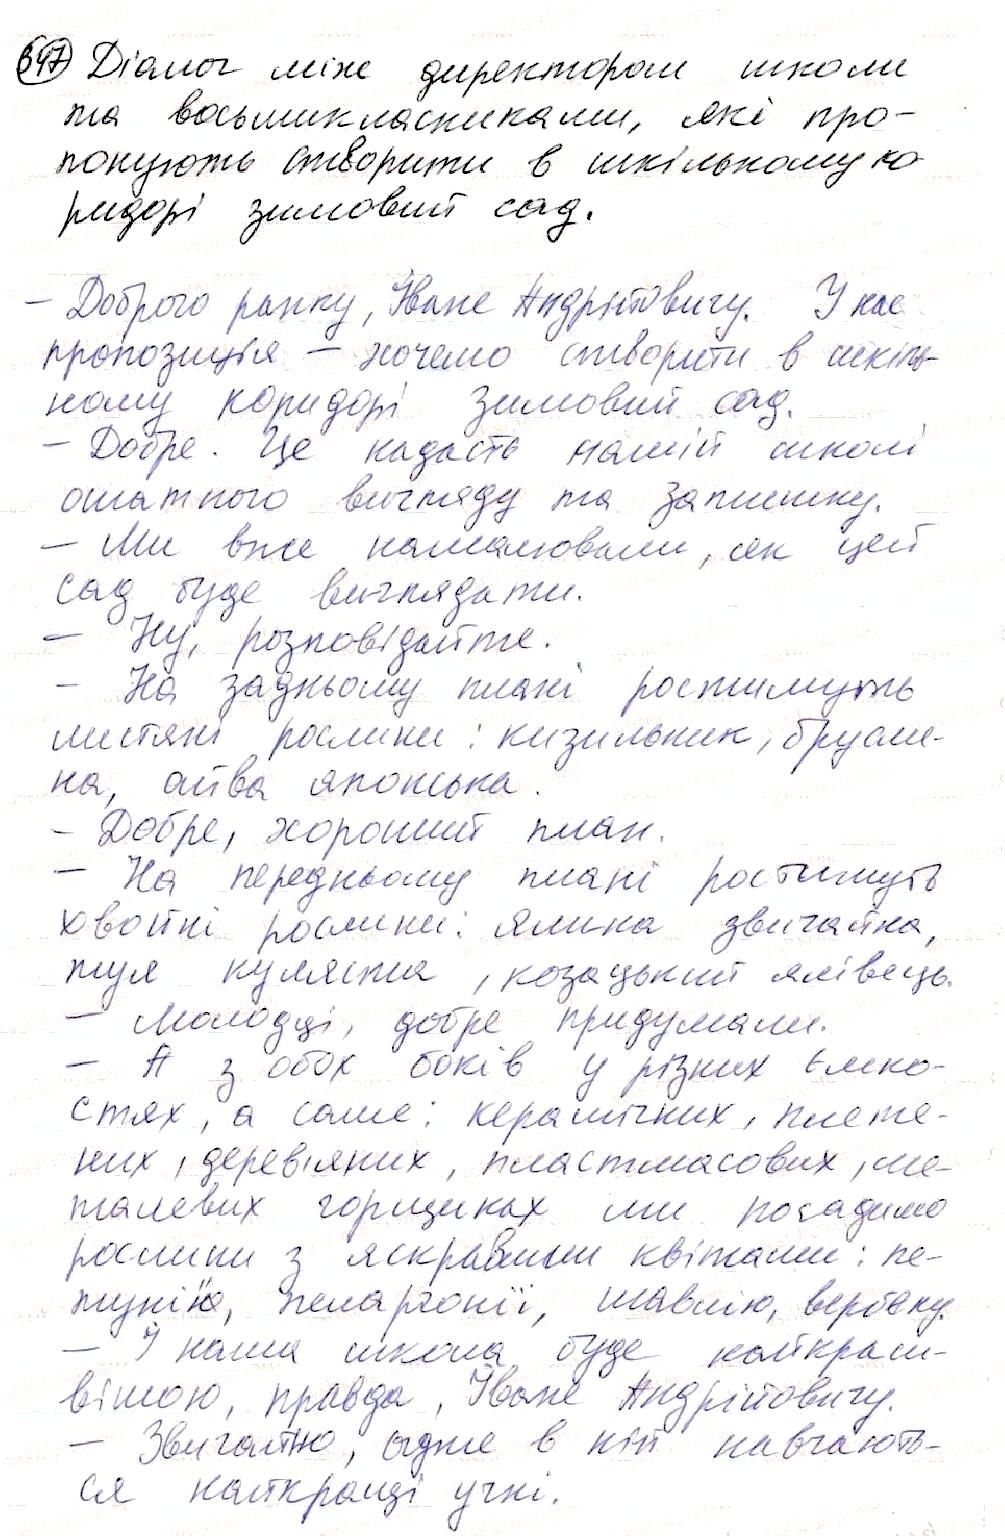 347 Діалог між директором школи
та восьмикласниками, які про-
понують створити в шкільному ко
ридорі зимовий сад.
– Доброго ранку, Іване Андрійовичу. У нас
пропозиція – хочемо створити в шкіль-
ному коридорі зимовий сад.
– Добре. Це надасть нашій школі
ошатного вигляду та затишку.
– Ми вже намалювали, як цей
сад буде виглядати.
– Ну, розповідайте.
– На задньому плані ростимуть
листяні рослини: кизильник, бруслі-
на, айва японська.
– Добре, хороший план.
– На передньому плані ростимуть
хвойні рослини: ялинка звичайна,
туя куляста, козацький ялівець.
– Молодці, добре придумали.
– А з обох боків у різних ємко-
стях, а саме: керамічних, плете-
них, дерев'яних, пластмасових, ме-
талевих горщиках ми посадимо
рослини з яскравими квітами: пе-
тунію, пеларгонії, шавлію, вербену.
– І наша школа буде найкрас-
вішою, правда, Іване Андрійовичу.
– Звичайно, адже в ній навчають-
ся найкращі учні.